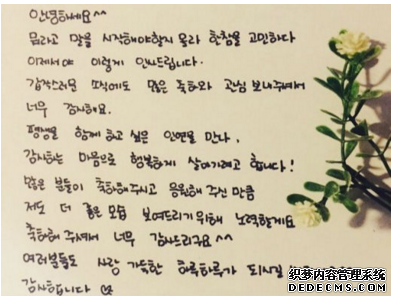 안녕하세요^^
뭐라고 말을 시작해야할지 몰라 한참을 고민하다
이제서야 이렇게 인사드립니다.
갑작스러운 소식에도 많은 축하와 관심 보내주셔서
너무 감사해요.
평생을 함께 하고 싶은 인연을 만나,
감사하는 마음으로 행복하게 살아가려고 합니다!
많은 분들이 축하해주시고 응원해 주신 만큼
저도 더 좋은 모습 보여드리기위해 노력할게요
축하해 주셔서 너무 감사드리구요^^
여러분들도 사랑 가득한 하루하루가 되시길
감사합니다 ♡
织梦内容管理系统
DEDECMS.COM